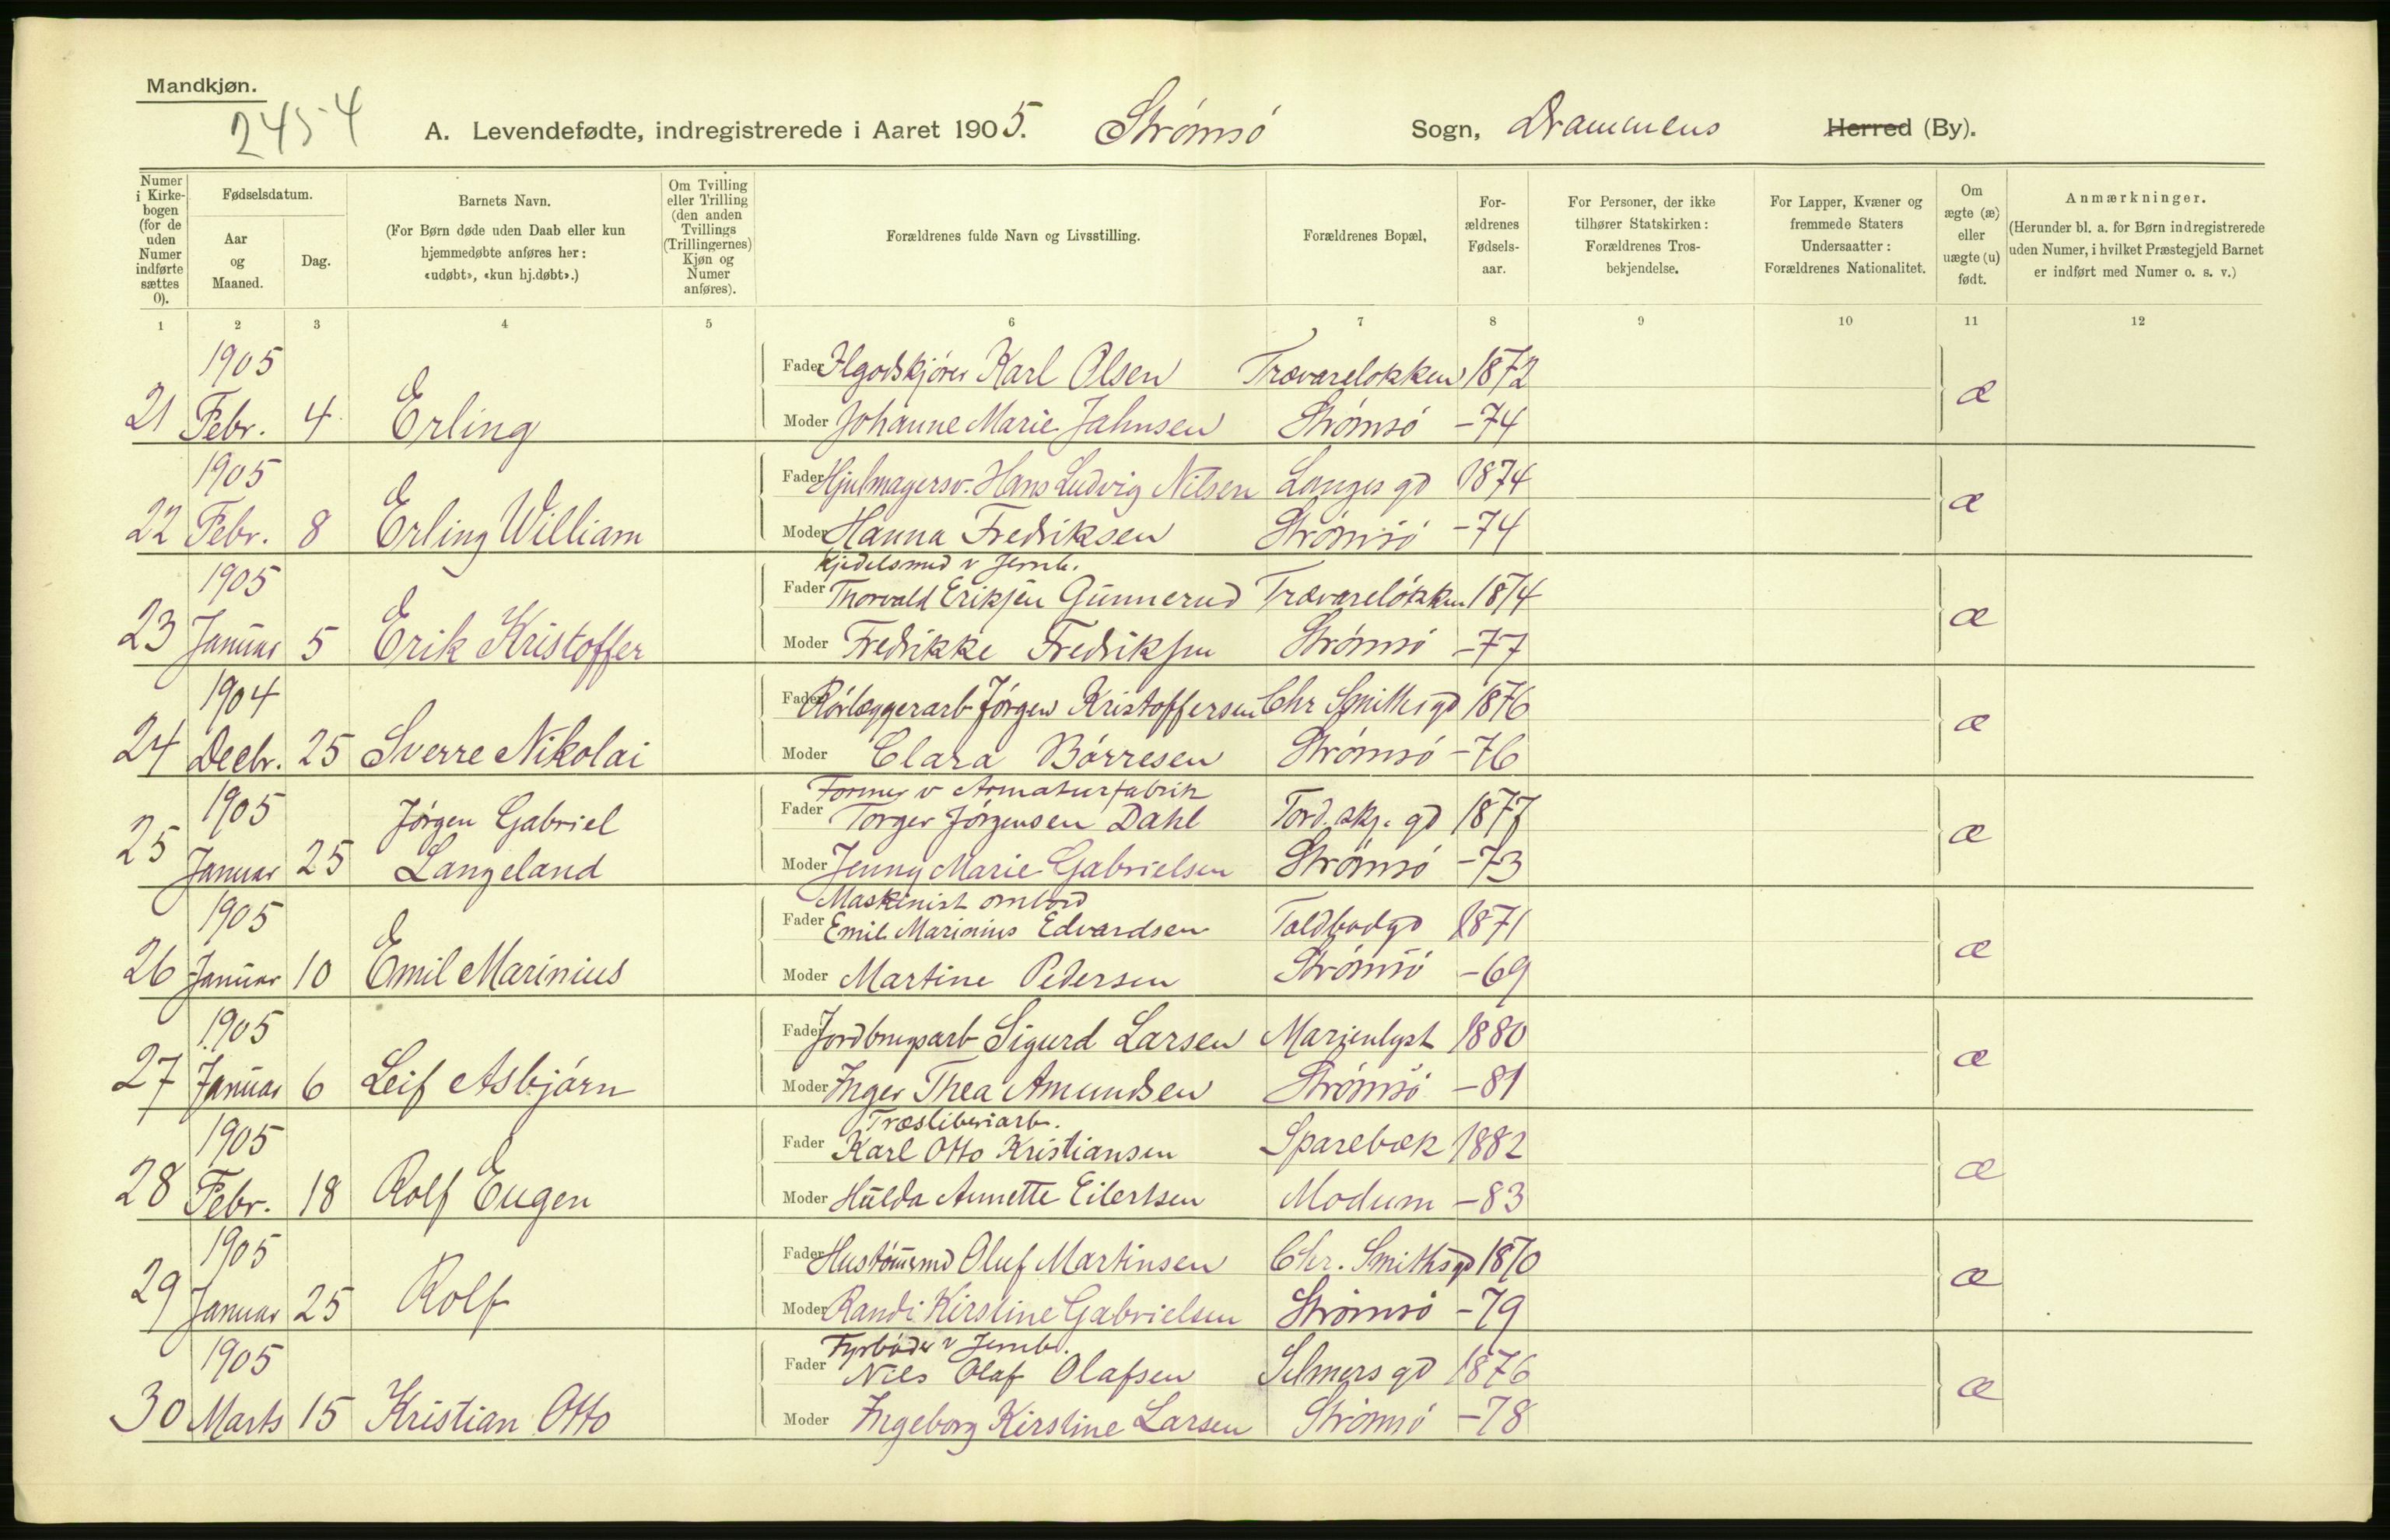 Mandkjøn.
2454
A. Levendefødte, indregistrerede i Aaret 1905. Strømsø Sogn, Drammens Herred (By).
Numer i Kirkebogen (for de uden Numer indførte sættes 0).
Fødselsdatum.
Aar og Maaned.
Dag.
Barnets Navn.
(For Børn døde uden Daab eller kun hjemmedøbte anføres her: «udøbt», «kun hj.døbt».)
Om Tvilling eller Trilling (den anden Tvillings (Trillingernes) Kjøn og Numer anføres).
Forældrenes fulde Navn og Livsstilling.
Forældrenes Bopæl,
Forældrenes Fødselsaar.
For Personer, der ikke tilhører Statskirken: Forældrenes Trosbekjendelse.
For Lapper, Kvæner og fremmede Staters Undersaatter: Forældrenes Nationalitet.
Om ægte (æ) eller uægte (u) født.
Anmærkninger.
(Herunder bl. a. for Børn indregistrerede uden Numer, i hvilket Præstegjeld Barnet er indført med Numer o. s. v.)
1 2 3 4 5 6 7 8 9 10 11 12
1905 Fader Karl Olsen Trævareløkken 1872
21 Febr. 4 Erling Moder Johanne Marie Jahnsen Strømsø -74 æ
1905 Fader Hjulmagersv. Hans Ludvig Nilsen Langes gd 1874
22 Febr. 8 Erling William Moder Hanna Fredriksen Strømsø -74 æ
Kjedelsmed v Jernb.
1905 Fader Thorvald Eriksen Gunnerud Trævareløkken 1874
23 Januar 5 Erik Kristoffer Moder Fredrikke Fredriksen Strømsø -77 æ
1904 Fader Rørlæggerarb Jørgen Kristoffersen Chr Smiths gd 1876
24 Decbr. 25 Sverre Nikolai Moder Clara Børresen Strømsø -76 æ
Former v Armaturfabrik
1905 Jørgen Gabriel Fader Torger Jørgensen Dahl Tord.skj. gd 1877
25 Januar 25 Langeland Moder Jenny Marie Gabrielsen Strømsø -73 æ
Maskinist ombord
1905 Fader Emil Marinius Edvardsen Toldbodgd 1871
26 Januar 10 Emil Marinius Moder Martine Pedersen Strømsø -69 æ
1905 Fader Jordbrugsarb Sigurd Larsen Marienlyst 1880
27 Januar 6 Leif Asbjørn Moder Inger Thea Amundsen Strømsø -81 æ
Træsliberiarb.
1905 Fader Karl Otto Kristiansen Sparebæk 1882
28 Febr. 18 Rolf Eugen Moder Hulda Annette Eilertsen Modum -83 æ
1905 Fader Hustømmd Oluf Martinsen Chr. Smiths gd 1870
29 Januar 25 Rolf Moder Randi Kirstine Gabrielsen Strømsø -79 æ
Fyrbøder v Jernb.
1905 Fader Nils Olaf Olafsen Selmers gd 1876
30 Marts 15 Kristian Otto Moder Ingeborg Kirstine Larsen Strømsø -78 æ